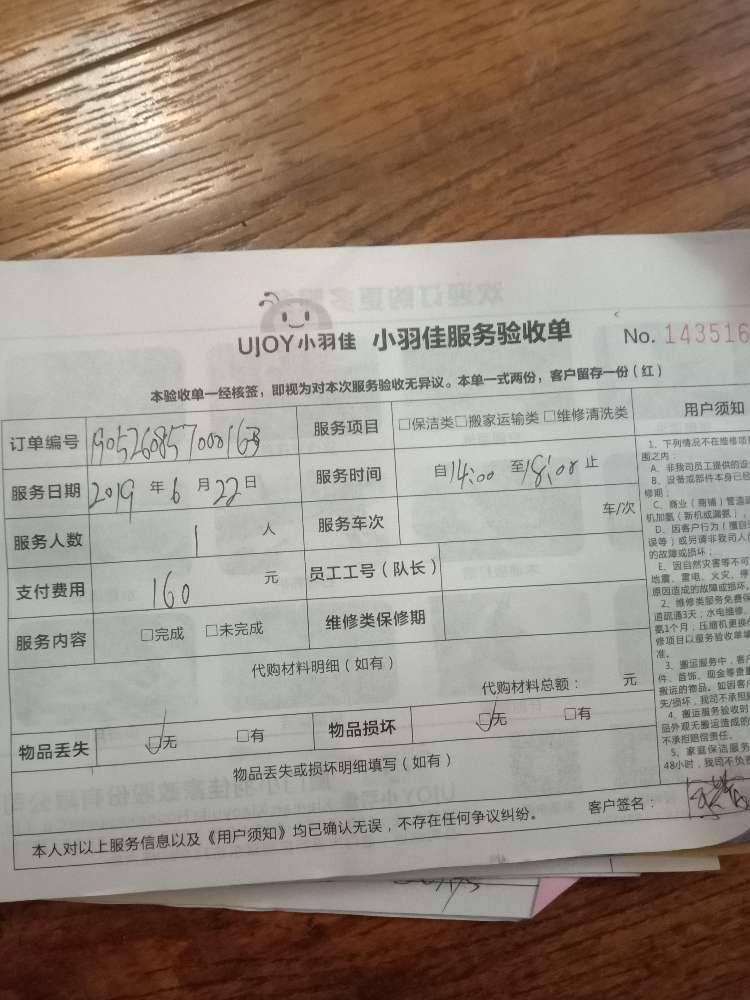 UJOY小羽佳 小羽佳服务验收单 No. 143516
本验收单一经核签，即视为对本次服务验收无异议。本单一式两份，客户留存一份（红）
订单编号 服务项目 □保洁类□搬家运输类□维修清洗类 用户须知
服务日期 2019 年 6 月 22 日 服务时间 自 14:00 至 18:00 止
服务人数 1 人 服务车次 车/次
支付费用 160 元 员工工号（队长）
服务内容 □完成 □未完成 维修类保修期
代购材料明细（如有）
代购材料总额： 元
物品丢失 ☑无 □有 物品损坏 ☑无 □有
物品丢失或损坏明细填写（如有）
本人对以上服务信息以及《用户须知》均已确认无误，不存在任何争议纠纷。 客户签名：
1、下列情况不在维修项
围之内：
A、非我司员工提供的设
B、设备或部件本身已经
修期；
C、商业（商铺）管道
机加氨（新机或漏氨）
D、因客户行为（擅自
误等）或另请非我司人
的故障或损坏；
E、因自然灾害等不可
地震、雷电、火灾、停
原因造成的故障或损坏。
2、维修类服务免费保
道疏通3天；水电维修、
氨1个月；压缩机更换
修项目以服务验收单
准。
3、搬运服务中，客户
件、首饰、现金等贵重
搬运的物品。如因客户
失/损坏，我司不承担
4、搬运服务验收时
品外观无搬运造成的
不承担赔偿责任。
5、家庭保洁服务
48小时，我司不负责